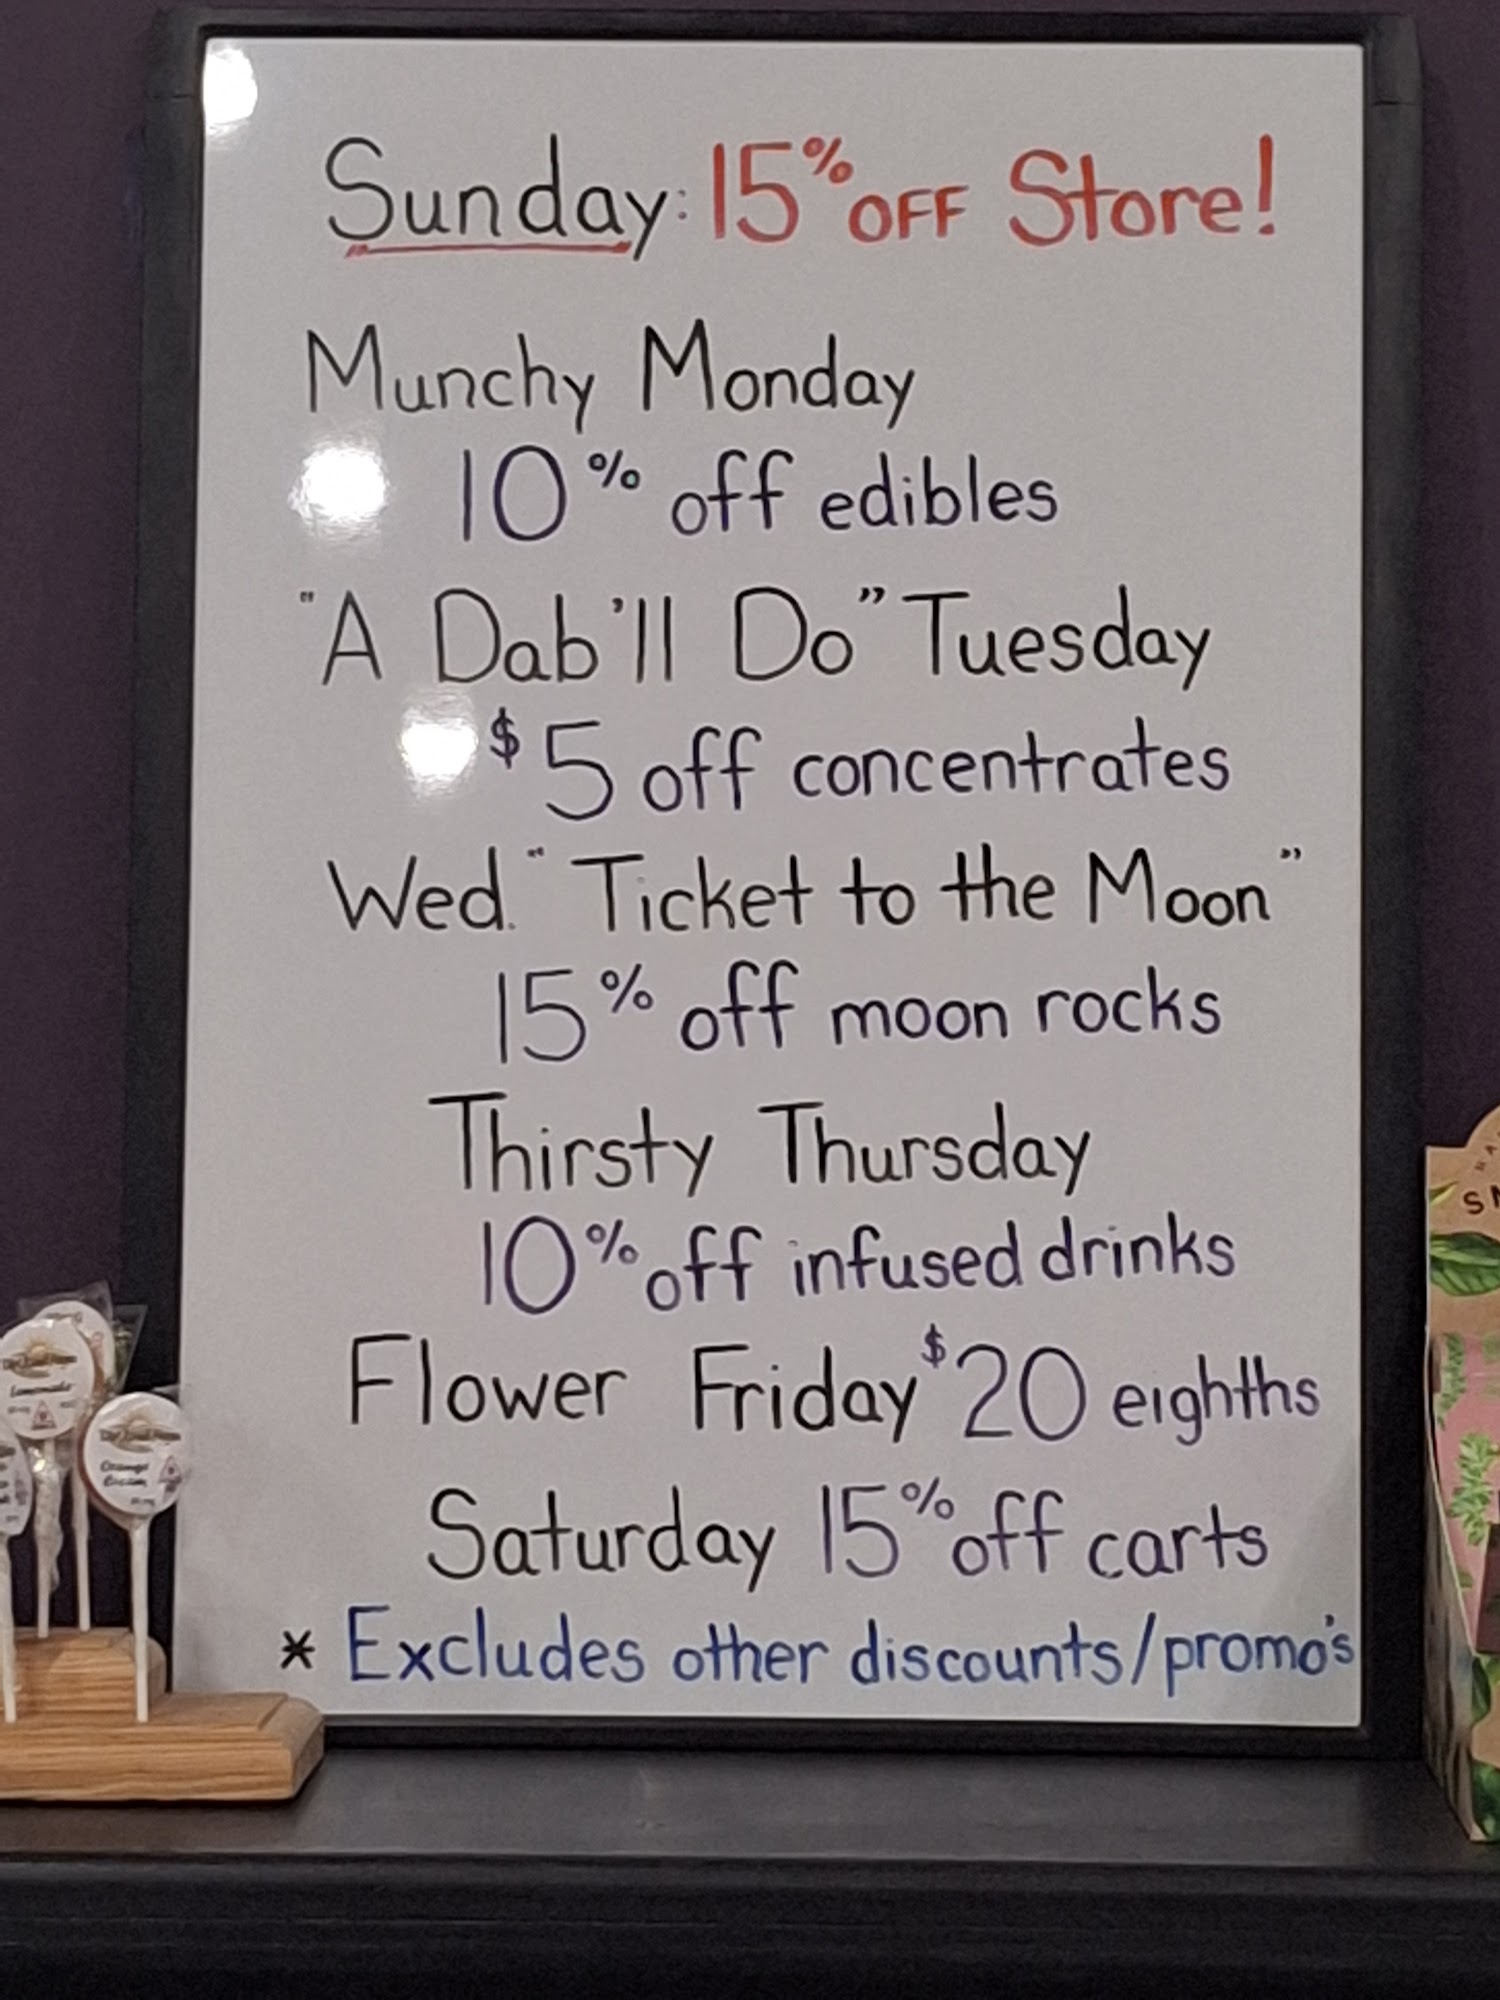 Sunday: 15% OFF Store!
Munchy Monday
10% off edibles
"A Dab'll Do" Tuesday
$5 off concentrates
Wed. "Ticket to the Moon"
15% off moon rocks
Thirsty Thursday
10% off infused drinks
Flower Friday $20 eighths
Saturday 15% off carts
* Excludes other discounts/promo's
Lemonade
Orange
Cream